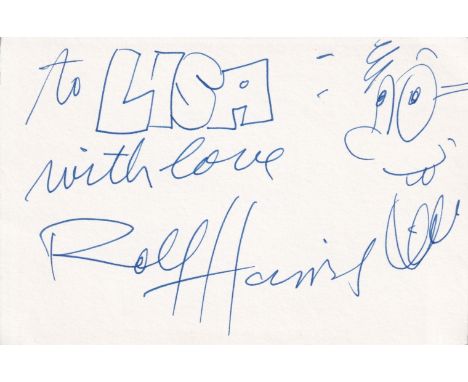 to LISA :
with love
Rolf Harris